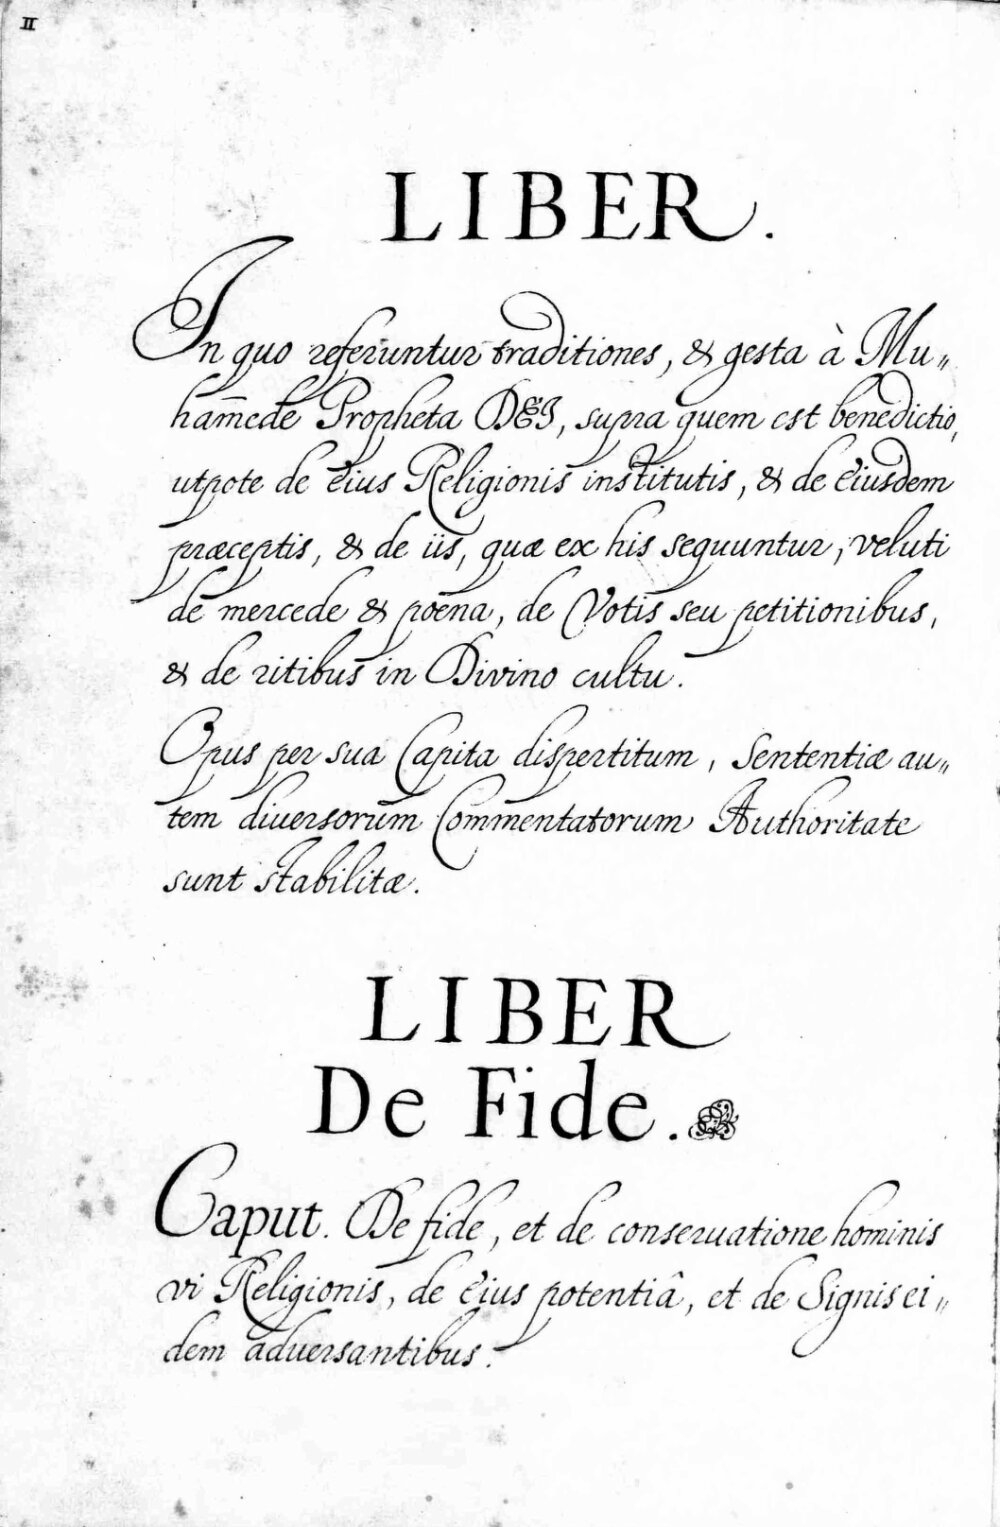 II
LIBER.
In quo referuntur traditiones, & gesta à Mu„
ham̄ede Propheta DEI, supra quem est benedictio,
utpote de eius Religionis institutis, & de eiusdem
præceptis, & de iis, quæ ex his sequuntur, veluti
de mercede & poena, de Votis seu petitionibus,
& de ritibus in Divino cultu.
Opus per sua Capita dispertitum, Sententiæ au„
tem diversorum Commentatorum Authoritate
sunt stabilitæ.
LIBER
De Fide.
Caput. De fide, et de conseruatione hominis
vi Religionis, de eius potentiâ, et de Signis ei„
dem aduersantibus.